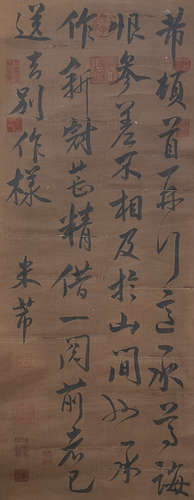 芾頓首再行這承尊誨
恨參差不相及於山間如承
作新討芒精借一閱前者已
送去別作樣
米芾